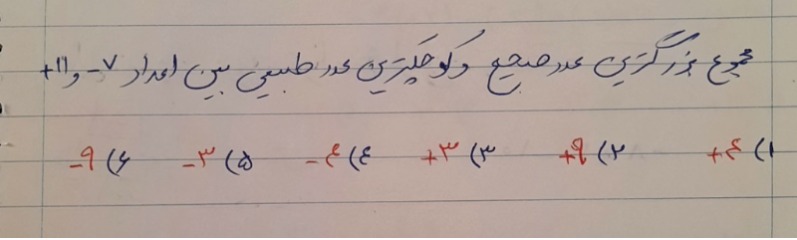 مجموع بزرگترین عدد صحیح و کوچکترین عدد طبیعی بین اعداد ۷- و ۱۱+
۱) ۴+ ۲) ۹+ ۳) ۳+ ۴) ۴- ۵) ۳- ۶) ۹-